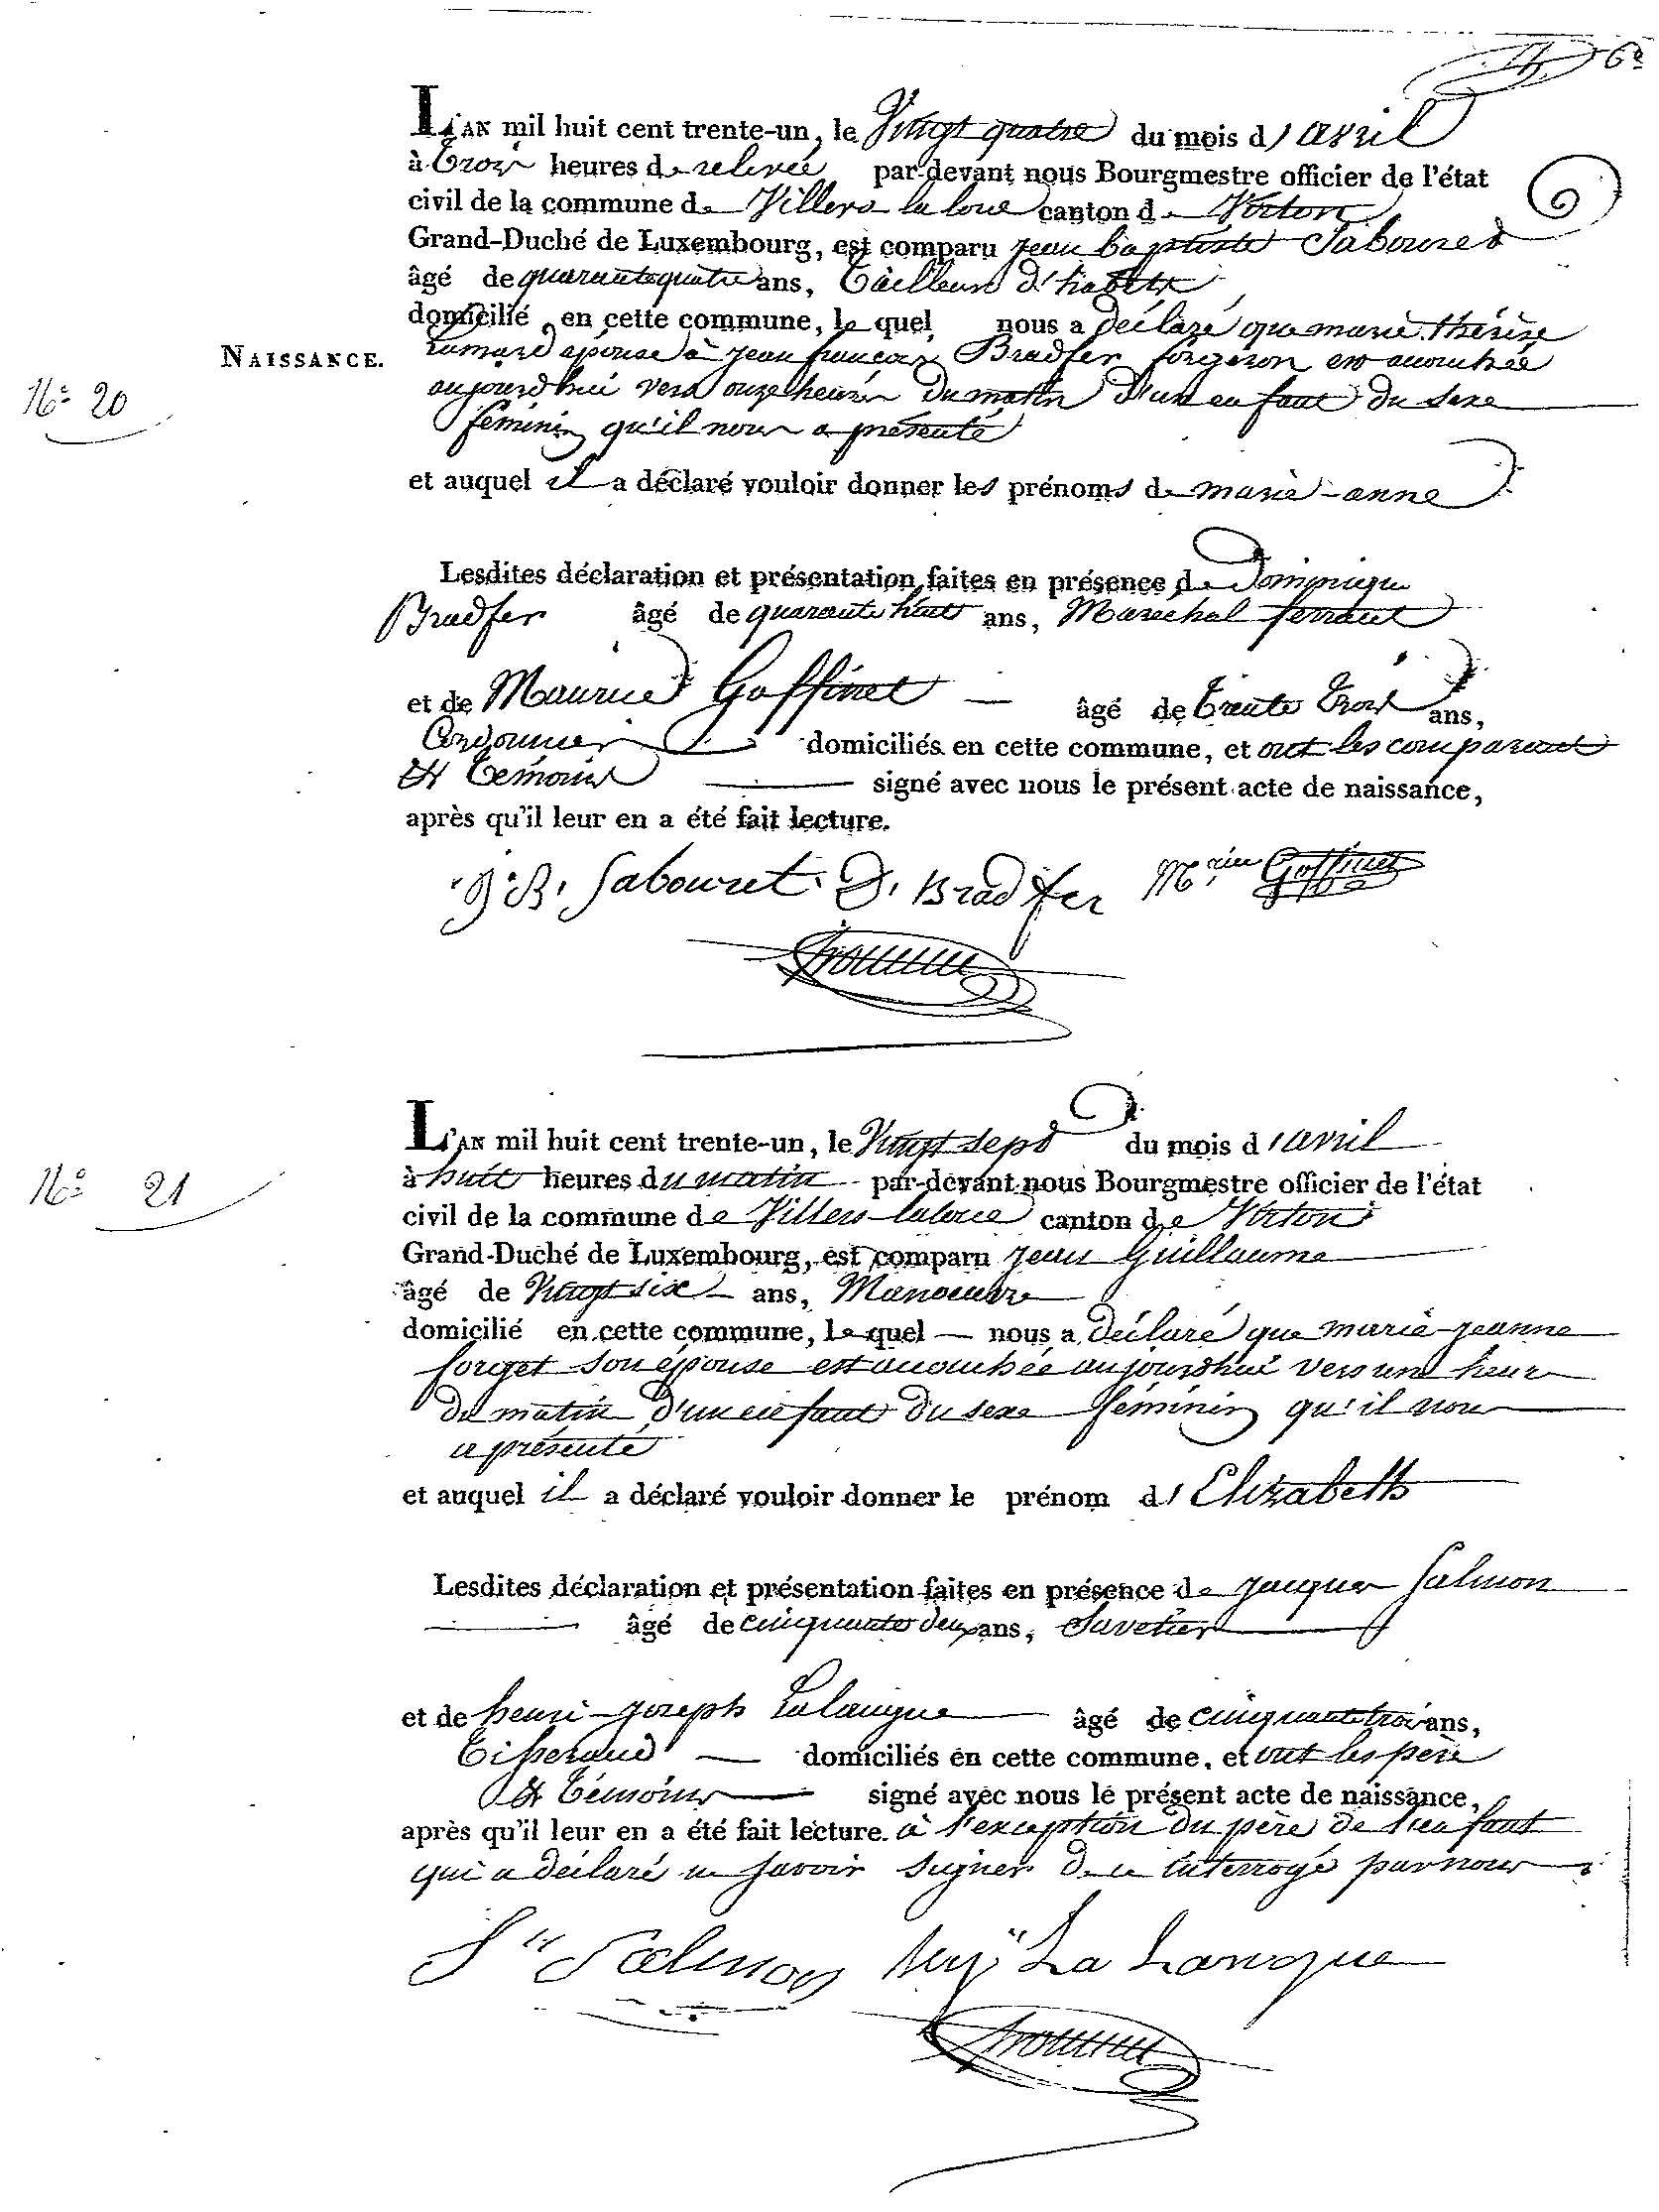 6e
L'AN mil huit cent trente-un, le Vingt quatre du mois d'avril
à trois heures de relevée par-devant nous Bourgmestre officier de l'état
civil de la commune de Villers la loue canton de Virton
Grand-Duché de Luxembourg, est comparu jean baptiste Sabouret
âgé de quarante quatre ans, tailleur d'habits
domicilié en cette commune, le quel nous a déclaré que marie thérèse
NAISSANCE.
épouse à jean françois Bradfer forgeron est accouchée
N° 20
aujourd'hui vers onze heures du matin d'un enfant du sexe
féminin qu'il nous a présenté
et auquel il a déclaré vouloir donner les prénoms de marie-anne
Lesdites déclaration et présentation faites en présence de Dominique
Bradfer âgé de quarante huit ans, Marechal ferrant
et de Maurice Goffinet — âgé de trente trois ans,
Cordonnier domiciliés en cette commune, et ont les comparant
et temoins signé avec nous le présent acte de naissance,
après qu'il leur en a été fait lecture.
J. B. Sabouret D. Bradfer M.rice Goffinet
L'AN mil huit cent trente-un, le Vingt sept du mois d'avril
N° 21
à huit heures du matin par-devant nous Bourgmestre officier de l'état
civil de la commune de Villers-laloue canton de Virton
Grand-Duché de Luxembourg, est comparu jean Guillaume
âgé de Vingt six ans, Manoeuvre
domicilié en cette commune, le quel — nous a déclaré que marie-jeanne
forget son épouse est accouchée aujourd'hui vers une heure
du matin d'un enfant du sexe féminin qu'il nous
a présenté
et auquel il a déclaré vouloir donner le prénom d'Elizabeth
Lesdites déclaration et présentation faites en présence de jacques Salmon
âgé de cinquante deux ans, Savetier
et de henri-joseph Lalangue âgé de cinquante trois ans,
Tisserand — domiciliés en cette commune, et ont les père
et témoins signé avec nous le présent acte de naissance,
après qu'il leur en a été fait lecture. à l'exception du père de l'enfant
qui a déclaré ne savoir signer de ce interrogé par nous
Salmon La Langue